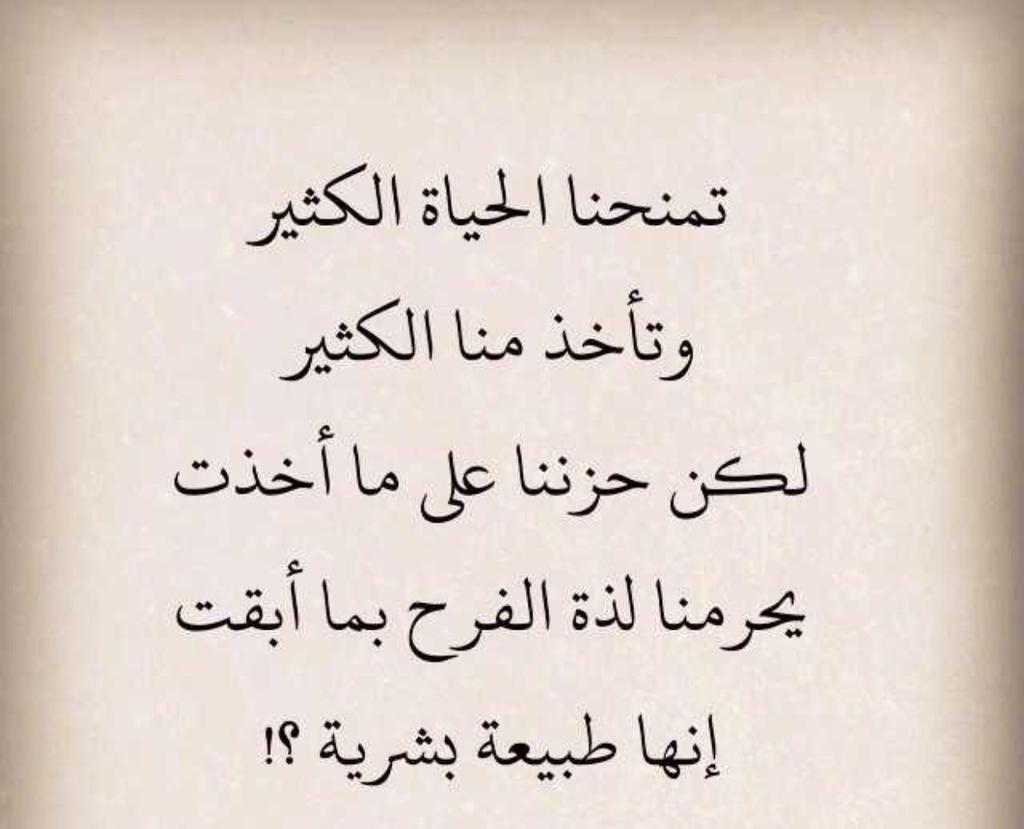 تمنحنا الحياة الكثير
وتأخذ منا الكثير
لكن حزننا على ما أخذت
يحرمنا لذة الفرح بما أبقت
إنها طبيعة بشرية ؟!